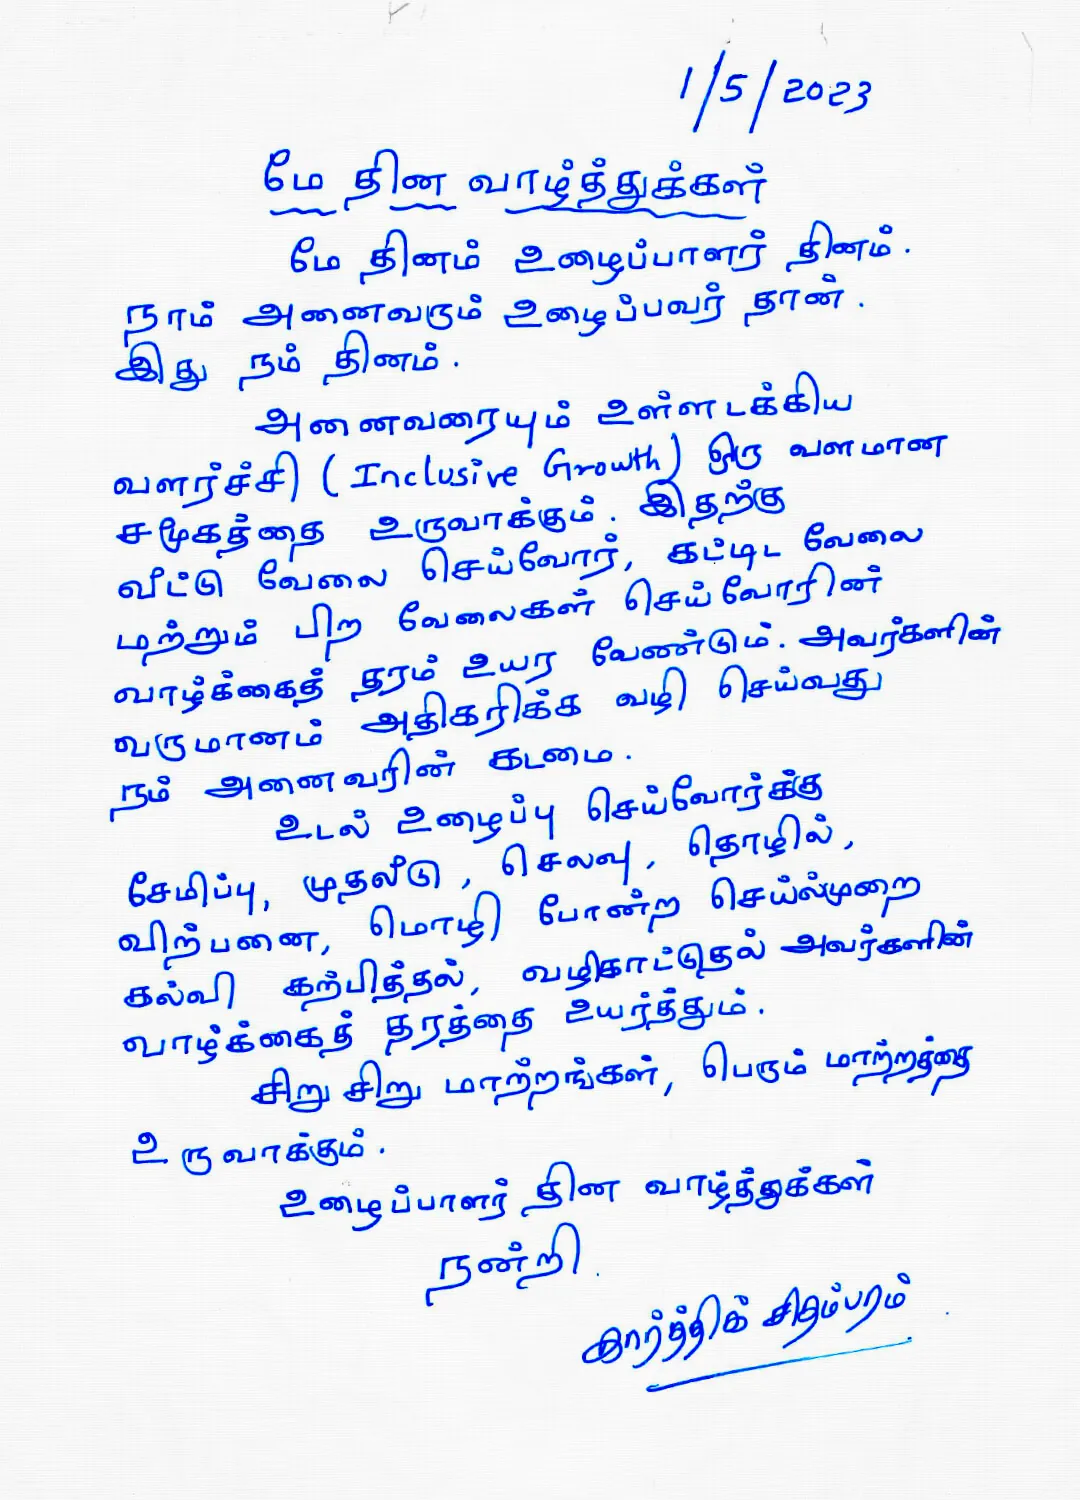 1/5/2023
மே தின வாழ்த்துக்கள்
மே தினம் உழைப்பாளர் தினம்.
நாம் அனைவரும் உழைப்பவர் தான்.
இது நம் தினம்.
அனைவரையும் உள்ளடக்கிய
வளர்ச்சி (Inclusive Growth) ஒரு வளமான
சமூகத்தை உருவாக்கும். இதற்கு
வீட்டு வேலை செய்வோர், கட்டிட வேலை
மற்றும் பிற வேலைகள் செய்வோரின்
வாழ்க்கைத் தரம் உயர வேண்டும். அவர்களின்
வருமானம் அதிகரிக்க வழி செய்வது
நம் அனைவரின் கடமை.
உடல் உழைப்பு செய்வோர்க்கு
சேமிப்பு, முதலீடு, செலவு, தொழில்,
விற்பனை, மொழி போன்ற செய்ல்முறை
கல்வி கற்பித்தல், வழிகாட்டுதல் அவர்களின்
வாழ்க்கைத் தரத்தை உயர்த்தும்.
சிறு சிறு மாற்றங்கள், பெரும் மாற்றத்தை
உருவாக்கும்.
உழைப்பாளர் தின வாழ்த்துக்கள்
நன்றி.
கார்த்திக் சிதம்பரம்